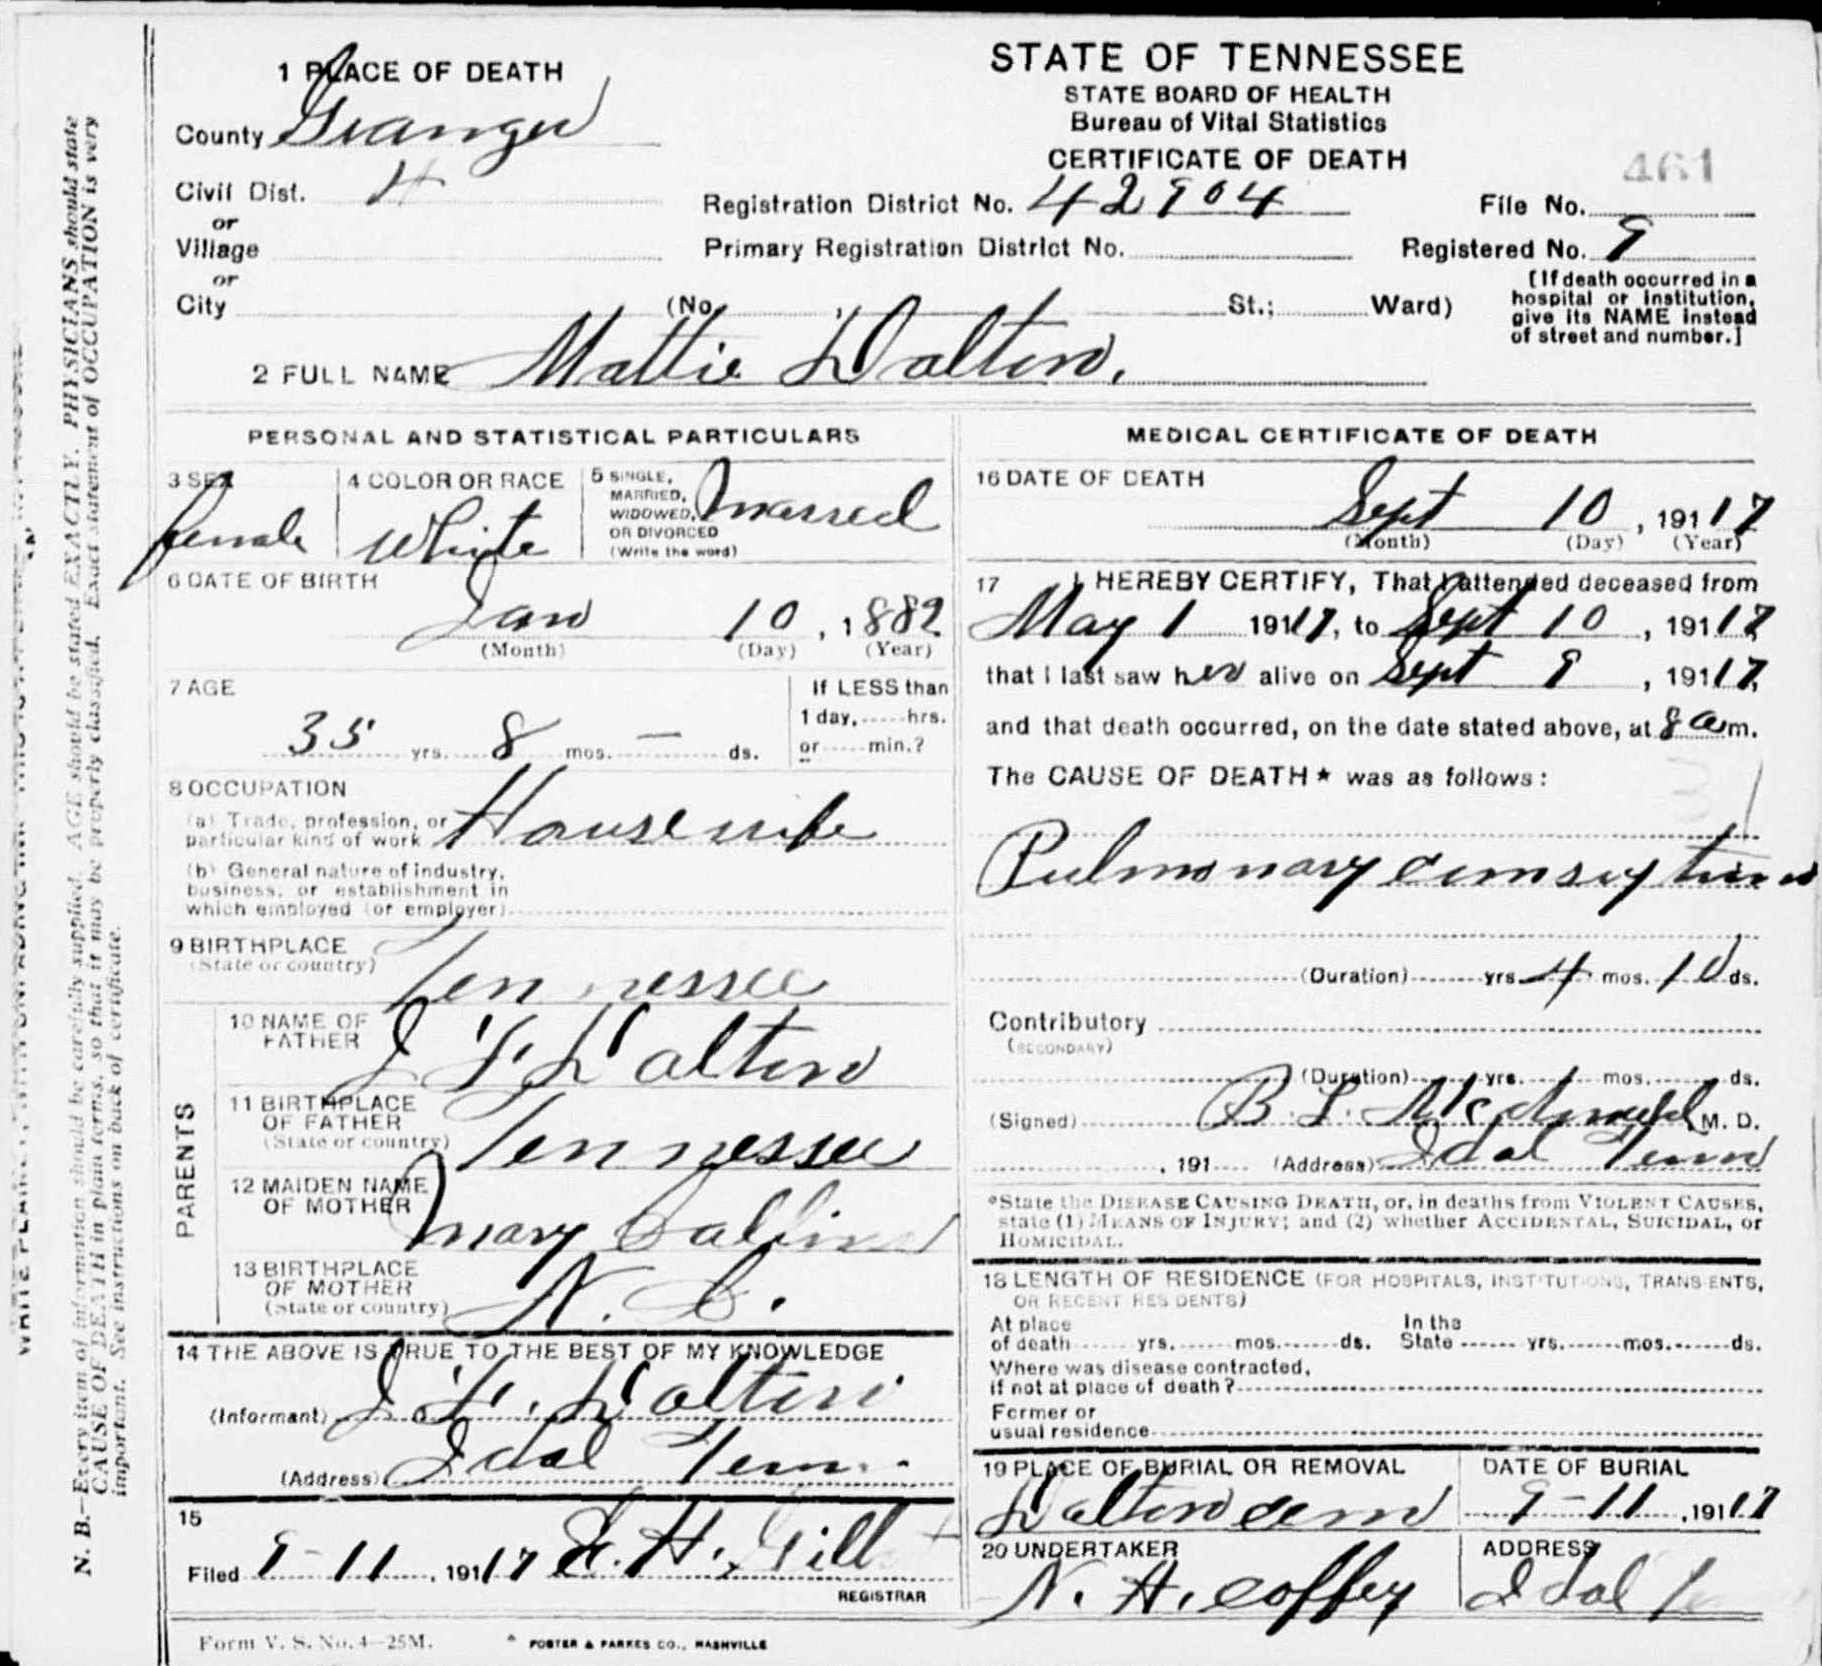 1 PLACE OF DEATH
County Grainger
Civil Dist. 4
or
Village
or
City (No. , St.; Ward)
STATE OF TENNESSEE
STATE BOARD OF HEALTH
Bureau of Vital Statistics
CERTIFICATE OF DEATH
461
Registration District No. 42904 File No.
Primary Registration District No. Registered No. 9
[If death occurred in a
hospital or institution,
give its NAME instead
of street and number.]
2 FULL NAME Mattie Dalton.
PERSONAL AND STATISTICAL PARTICULARS
3 SEX female
4 COLOR OR RACE White
5 SINGLE,
MARRIED,
WIDOWED,
OR DIVORCED
(Write the word) Married
6 DATE OF BIRTH
Jan 10, 1882
(Month) (Day) (Year)
7 AGE
35 yrs. 8 mos. — ds.
If LESS than
1 day, hrs.
or min.?
8 OCCUPATION
(a) Trade, profession, or
particular kind of work Housewife
(b) General nature of industry,
business, or establishment in
which employed (or employer)
9 BIRTHPLACE
(State or country) Tennessee
PARENTS
10 NAME OF
FATHER Dalton
11 BIRTHPLACE
OF FATHER
(State or country) Tennessee
12 MAIDEN NAME
OF MOTHER Mary
13 BIRTHPLACE
OF MOTHER
(State or country) N. C.
14 THE ABOVE IS TRUE TO THE BEST OF MY KNOWLEDGE
(Informant) Dalton
(Address) Idol Tenn.
15
Filed 9-11, 19117 H. Gill
REGISTRAR
MEDICAL CERTIFICATE OF DEATH
16 DATE OF DEATH
Sept 10, 19117
(Month) (Day) (Year)
17 I HEREBY CERTIFY, That I attended deceased from
May 1 19117, to Sept 10, 19117
that I last saw her alive on Sept 9, 19117,
and that death occurred, on the date stated above, at 8 a m.
The CAUSE OF DEATH* was as follows:
31
Pulmonary
(Duration) yrs. 4 mos. 10 ds.
Contributory
(SECONDARY)
(Duration) yrs. mos. ds.
(Signed) B. L. M. D.
, 191 (Address) Idol Tenn
*State the DISEASE CAUSING DEATH, or, in deaths from VIOLENT CAUSES,
state (1) MEANS OF INJURY; and (2) whether ACCIDENTAL, SUICIDAL, or
HOMICIDAL.
18 LENGTH OF RESIDENCE (FOR HOSPITALS, INSTITUTIONS, TRANSIENTS,
OR RECENT RESIDENTS)
At place
of death yrs. mos. ds. In the
State yrs. mos. ds.
Where was disease contracted,
if not at place of death?
Former or
usual residence
19 PLACE OF BURIAL OR REMOVAL
Dalton cem
DATE OF BURIAL
9-11, 19117
20 UNDERTAKER
N. H. Coffey
ADDRESS
Idol
Form V. S. No. 4—25M.
FOSTER & PARKES CO., NASHVILLE
N. B.—Every item of information should be carefully supplied. AGE should be stated EXACTLY. PHYSICIANS should state
CAUSE OF DEATH in plain terms, so that it may be properly classified. Exact statement of OCCUPATION is very
important. See instructions on back of certificate.